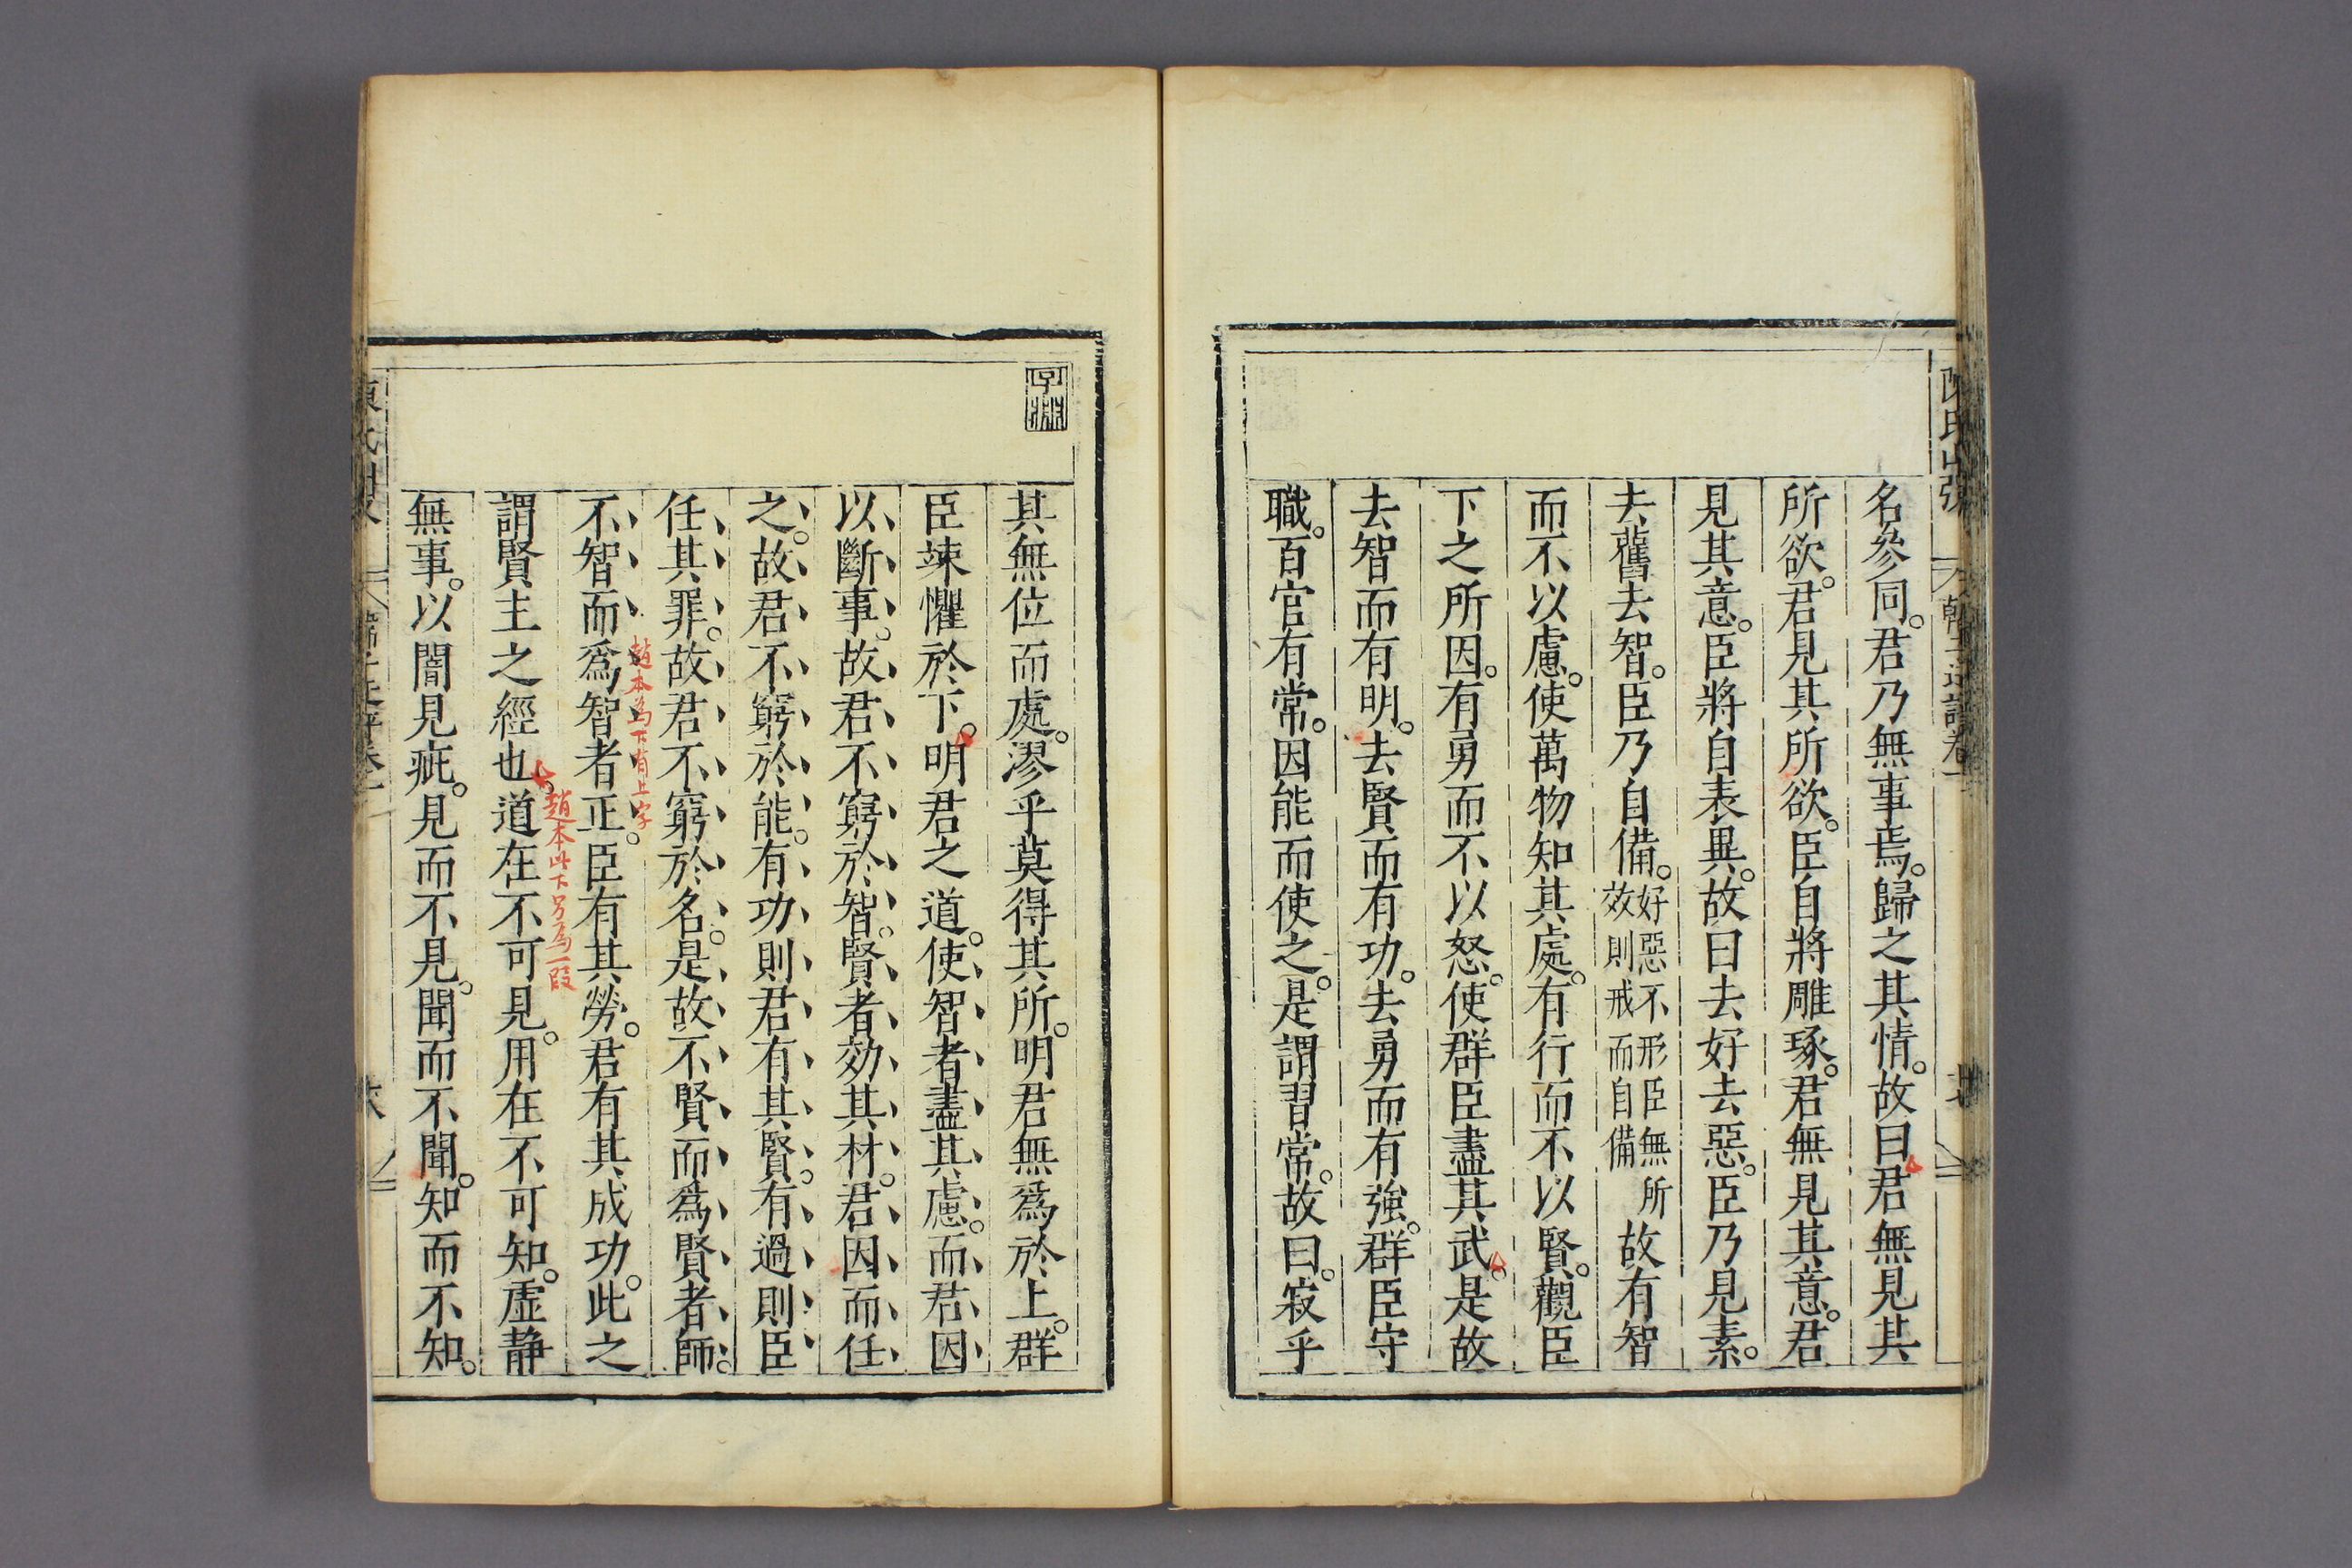 名參同。君乃無事焉。歸之其情。故曰君無見其
所欲。君見其所欲。臣自將雕琢。君無見其意。君
見其意。臣將自表異。故曰去好去惡。臣乃見素。
去舊去智。臣乃自備。好惡不形臣無所效則戒而自備故有智
而不以慮。使萬物知其處。有行而不以賢。觀臣
下之所因。有勇而不以怒。使群臣盡其武。是故
去智而有明。去賢而有功。去勇而有強。群臣守
職。百官有常。因能而使之。是謂習常。故曰。寂乎
其無位而處。漻乎莫得其所。明君無爲於上。群
臣竦懼於下。明君之道。使智者盡其慮。而君因
以斷事。故君不窮於智。賢者効其材。君因而任
之。故君不窮於能。有功則君有其賢。有過則臣
任其罪。故君不窮於名。是故不賢而爲賢者師。
趙本為下有上字
不智而爲智者正。臣有其勞。君有其成功。此之
趙本此下另為一段
謂賢主之經也。道在不可見。用在不可知。虛静
無事。以闇見疵。見而不見。聞而不聞。知而不知。